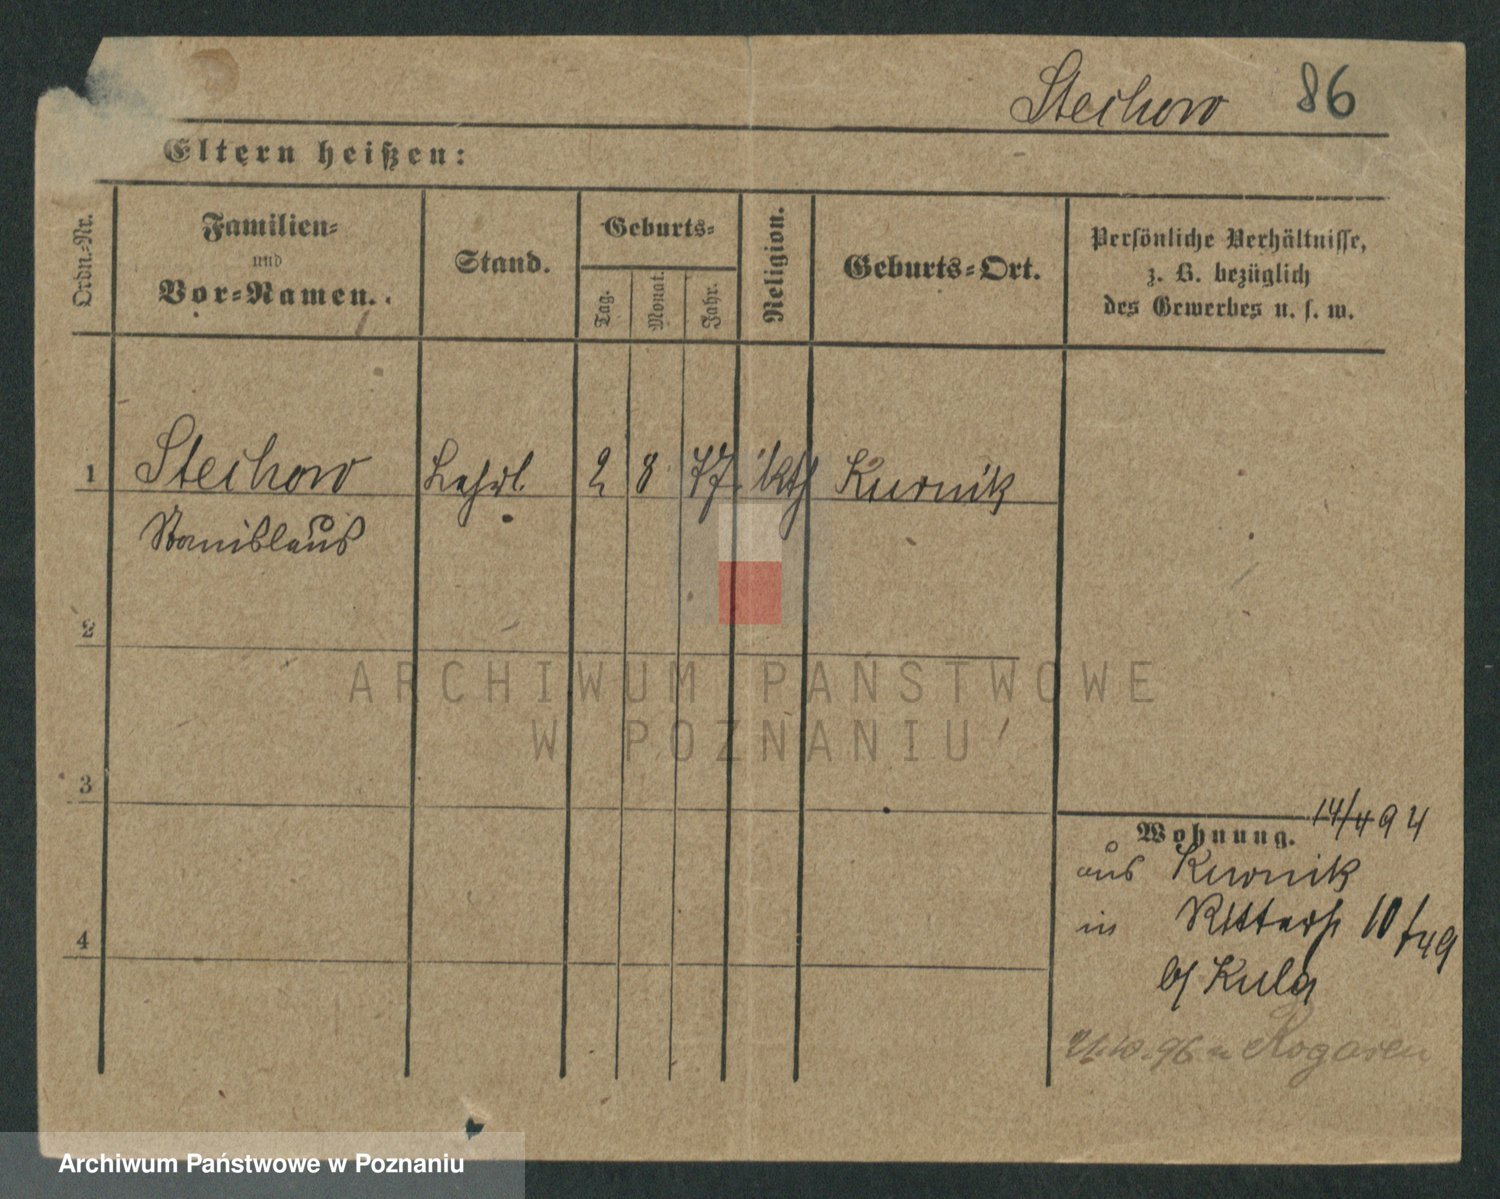 Stechow 86
Eltern heißen:
Ordn.-Nr.
Familien-
und
Vor-Namen.
Stand.
Geburts-
Tag.
Monat.
Jahr.
Religion.
Geburts-Ort.
Persönliche Verhältnisse,
z. B. bezüglich
des Gewerbes u. s. w.
1 Stechow Lehrl. 2 8 77 kth Kurnik
Stanislaus
2
3
4
14/4 94
Wohnung.
aus Kurnik
in Ritterst 10
b/ Kula
21.10.96 n Rogasen
ARCHIWUM PAŃSTWOWE
W POZNANIU
Archiwum Państwowe w Poznaniu